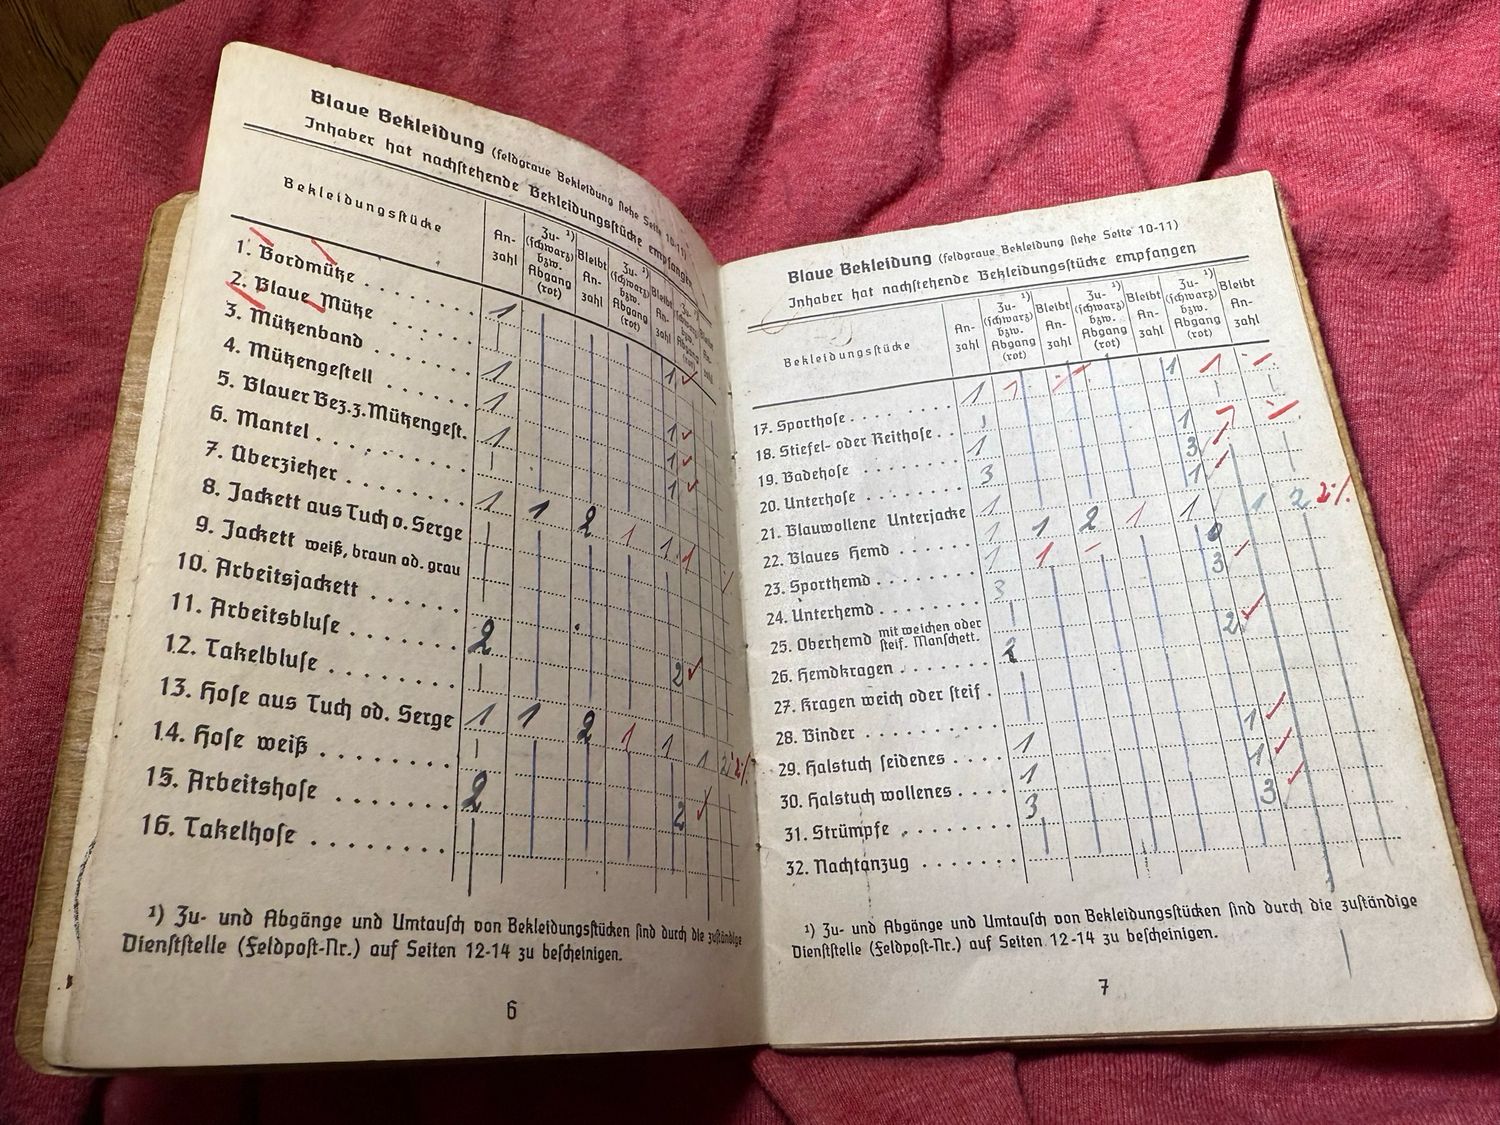 Blaue Bekleidung (feldgraue Bekleidung siehe Seite 10-11)
Inhaber hat nachstehende Bekleidungsstücke empfangen
Bekleidungsstücke
An-
zahl
Zu- ¹)
(schwarz)
bzw.
Abgang
(rot)
Bleibt
An-
zahl
Zu- ¹)
(schwarz)
bzw.
Abgang
(rot)
Bleibt
An-
zahl
Zu-
(schwarz)
bzw.
Abgang
(rot)
Bleibt
An-
zahl
1. Bordmütze . . . . . . . 1
2. Blaue Mütze . . . . .
3. Mützenband . . . . . . 1 1
4. Mützengestell . . . . . 1
5. Blauer Bez.z.Mützengest. 1 1
6. Mantel . . . . . . . . 1
7. Überzieher . . . . . . 1
8. Jackett aus Tuch o. Serge 1 1 2 1 1 1
9. Jackett weiß, braun od. grau
10. Arbeitsjackett . . . . . .
11. Arbeitsbluse . . . . . . 2 2
12. Takelbluse . . . . . . .
13. Hose aus Tuch od. Serge 1 1 2 1 1 1 2
14. Hose weiß . . . . . . .
15. Arbeitshose . . . . . . 2 2
16. Takelhose . . . . . . .
¹) Zu- und Abgänge und Umtausch von Bekleidungsstücken sind durch die zuständige
Dienststelle (Feldpost-Nr.) auf Seiten 12-14 zu bescheinigen.
6
Blaue Bekleidung (feldgraue Bekleidung siehe Seite 10-11)
Inhaber hat nachstehende Bekleidungsstücke empfangen
Bekleidungsstücke
An-
zahl
Zu- ¹)
(schwarz)
bzw.
Abgang
(rot)
Bleibt
An-
zahl
Zu- ¹)
(schwarz)
bzw.
Abgang
(rot)
Bleibt
An-
zahl
Zu- ¹)
(schwarz)
bzw.
Abgang
(rot)
Bleibt
An-
zahl
17. Sporthose . . . . . . . . 1 1 1 1
18. Stiefel- oder Reithose . .
19. Badehose . . . . . . . 1 1
20. Unterhose . . . . . . . 3 3
21. Blauwollene Unterjacke 1 1
22. Blaues Hemd . . . . . . 1 1 2 1 1 1 2 2
23. Sporthemd . . . . . . . 1 1
24. Unterhemd . . . . . . . 3 3
25. Oberhemd mit weichen oder
steif. Manschett.
26. Hemdkragen . . . . . . 2 2
27. Kragen weich oder steif .
28. Binder . . . . . . . . .
29. Halstuch seidenes . . . . 1 1
30. Halstuch wollenes . . . . 1 1
31. Strümpfe . . . . . . . . 3 3
32. Nachtanzug . . . . . . .
¹) Zu- und Abgänge und Umtausch von Bekleidungsstücken sind durch die zuständige
Dienststelle (Feldpost-Nr.) auf Seiten 12-14 zu bescheinigen.
7